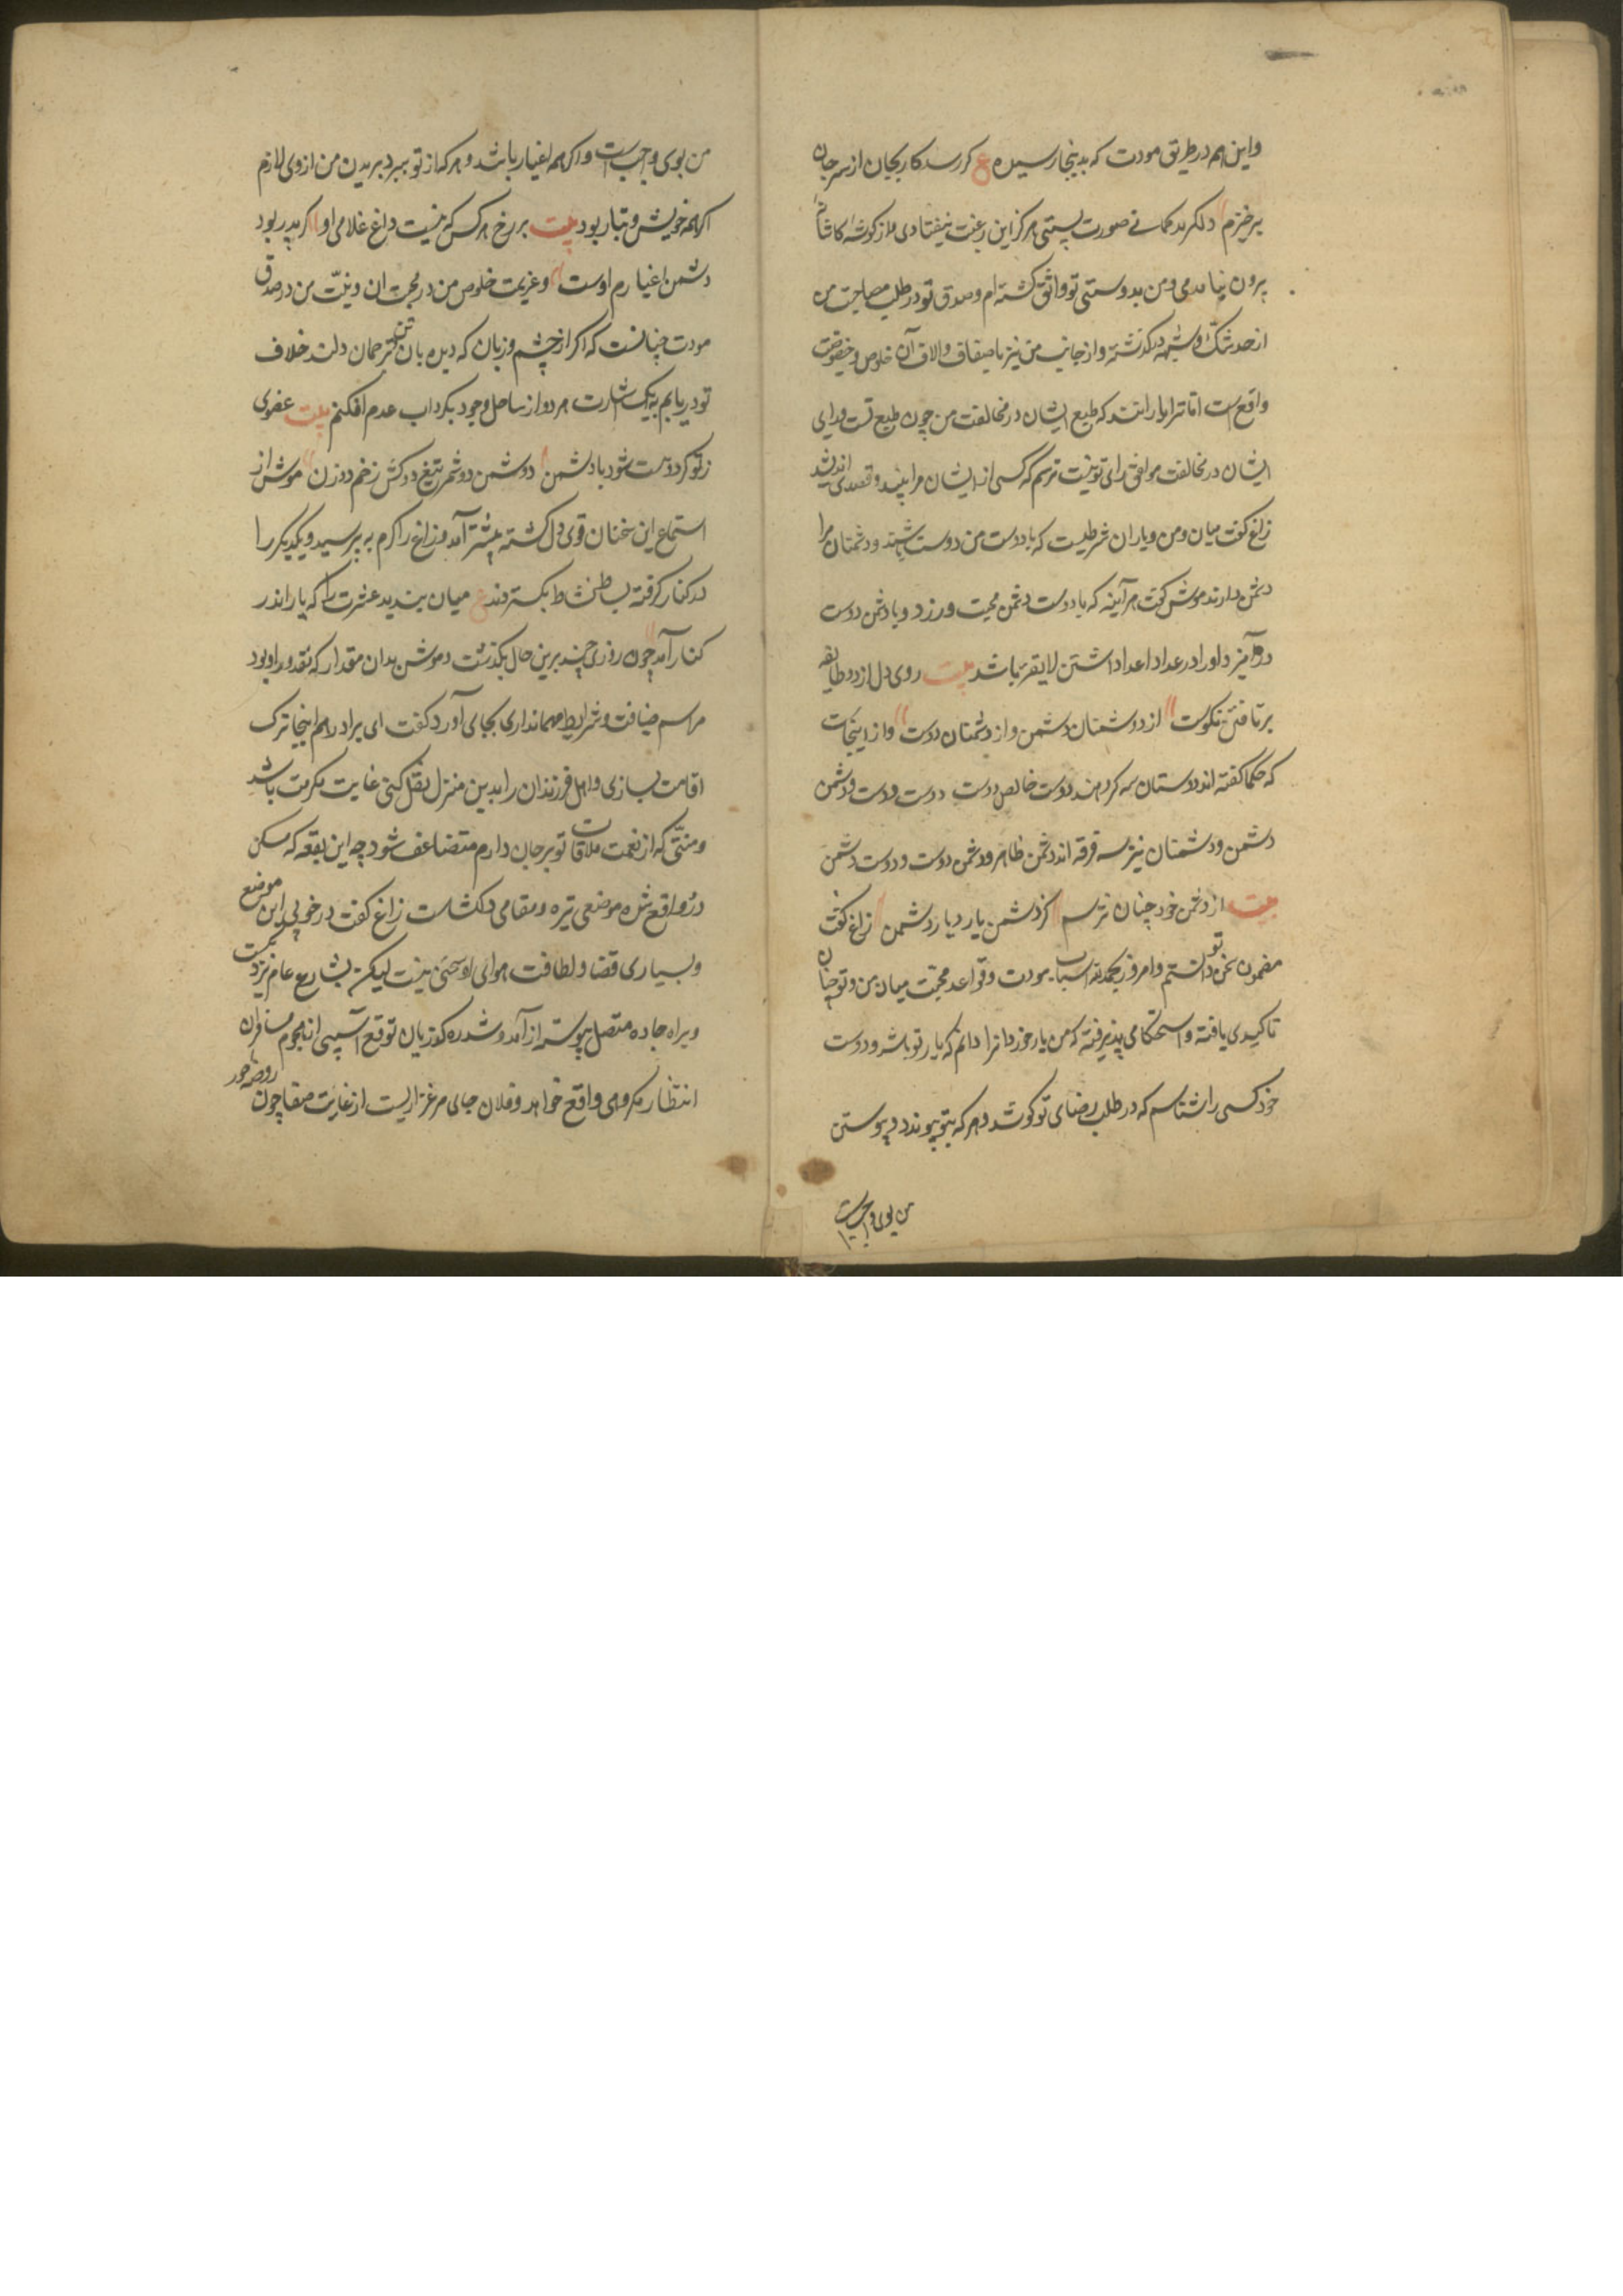 واین هم در طریق مودت که بدینجا رسیده ع کر رسد کار بجان از سر جان
برخیزم دلکر بد کمانی صورت بستی هرکز این رغبت نیفتادی و از کوشه کاشانه
بیرون نیامدمی و من بدوستی تو واثق کشته ام و صدق تو در طلب مصاحبت من
از حد شک و شبهه درکذشته و از جانب من نیز باضعاف و الاف آن خلوص و خصوصیت
واقع است اما ترا یارانند که طبع ایشان در مخالفت من چون طبع تست و رای
ایشان در مخالفت موافق رای تو نیست ترسم که کسی از ایشان مرا بیند و قصدی اندیشد
زاغ کفت میان من و یاران شرطیست که با دوست من دوست باشند و دشمنان مرا
دشمن دارند موش کفت هرآینه که با دوست دشمن محبت ورزد و با دشمن دوست
درآمیزد او را در عداد اعدا داشتن لایقتر باشد بیت روی دل از دو طایفه
برتافتن نکوست از دوستان دشمن و از دشمنان دوست و از اینجاست
که حکما کفته اند دوستان سه کروهند دوست خالص و دوست دوست و دشمن
دشمن و دشمنان نیز سه فرقه اند دشمن ظاهر و دشمن دوست و دوست دشمن
بیت از دشمن خود چنان نترسم کز دشمن یار و یار دشمن زاغ کفت
مضمون سخن تو دانستم و امروز بحمدالله اسباب مودت و قواعد محبت میان من و تو چنان
تاکیدی یافته و استحکامی پذیرفته که من یار خود آنرا دانم که یار تو باشد و دوست
خود کسی را شناسم که در طلب رضای تو کوشد و هر که بتو پیوندد پیوستن
من بوی واجبست
من بوی واجب است و اکرچه اغیار باشد و هر که از تو ببرد بریدن من از وی لازم
اکرچه خویش و تبار بود بیت بر رخ هر کس که نیست داغ غلامی او کر پدر بود
دشمن اغیارم اوست و عزیمت خلوص من در محبت ان و نیت من در صدق
مودت چنانست که اکر از چشم و زبان که دیده بان تن و ترجمان دلند خلاف
تو دریابم بیک اشارت هر دو از ساحل وجود بکرداب عدم افکنم بیت عضوی
ز تو کر دوست شود با دشمن دشمن دو شمر تیغ دو کش زخم دو زن موش از
استماع این سخنان قوی دل کشته پیشتر آمد و زاغ را کرم بپرسید و یکدیکر را
در کنار کرفته بساط نشاط بکستردند ع میان ببندید عشرت را که یار اندر
کنار آمد چون روزی چند برین حال بکذشت و موش بدان مقدار که مقدور او بود
مراسم ضیافت و شرایط مهمانداری بجای آورد کفت ای برادر اکر هم اینجا ترک
اقامت بسازی و اهل و فرزندان را بدین منزل نقل کنی غایت مکرمت باشد
و منتی که از نعمت ملاقات تو بر جان دارم متضاعف شود چه این بقعه که مسکن
درو واقع شده موضعی تیره و مقامی دلکشاست زاغ کفت در خوبی این موضع
و بسیاری فضا و لطافت هوای او سخنی نیست لیکن بشارع عام نزدیکست
و براه جاده متصل پیوسته از آمد و شد ره کذریان توقع آسیبی از هجوم مسافران
انتظار مکروهی واقع خواهد و فلان جای مرغزاریست از غایت صفا چون روضه حور